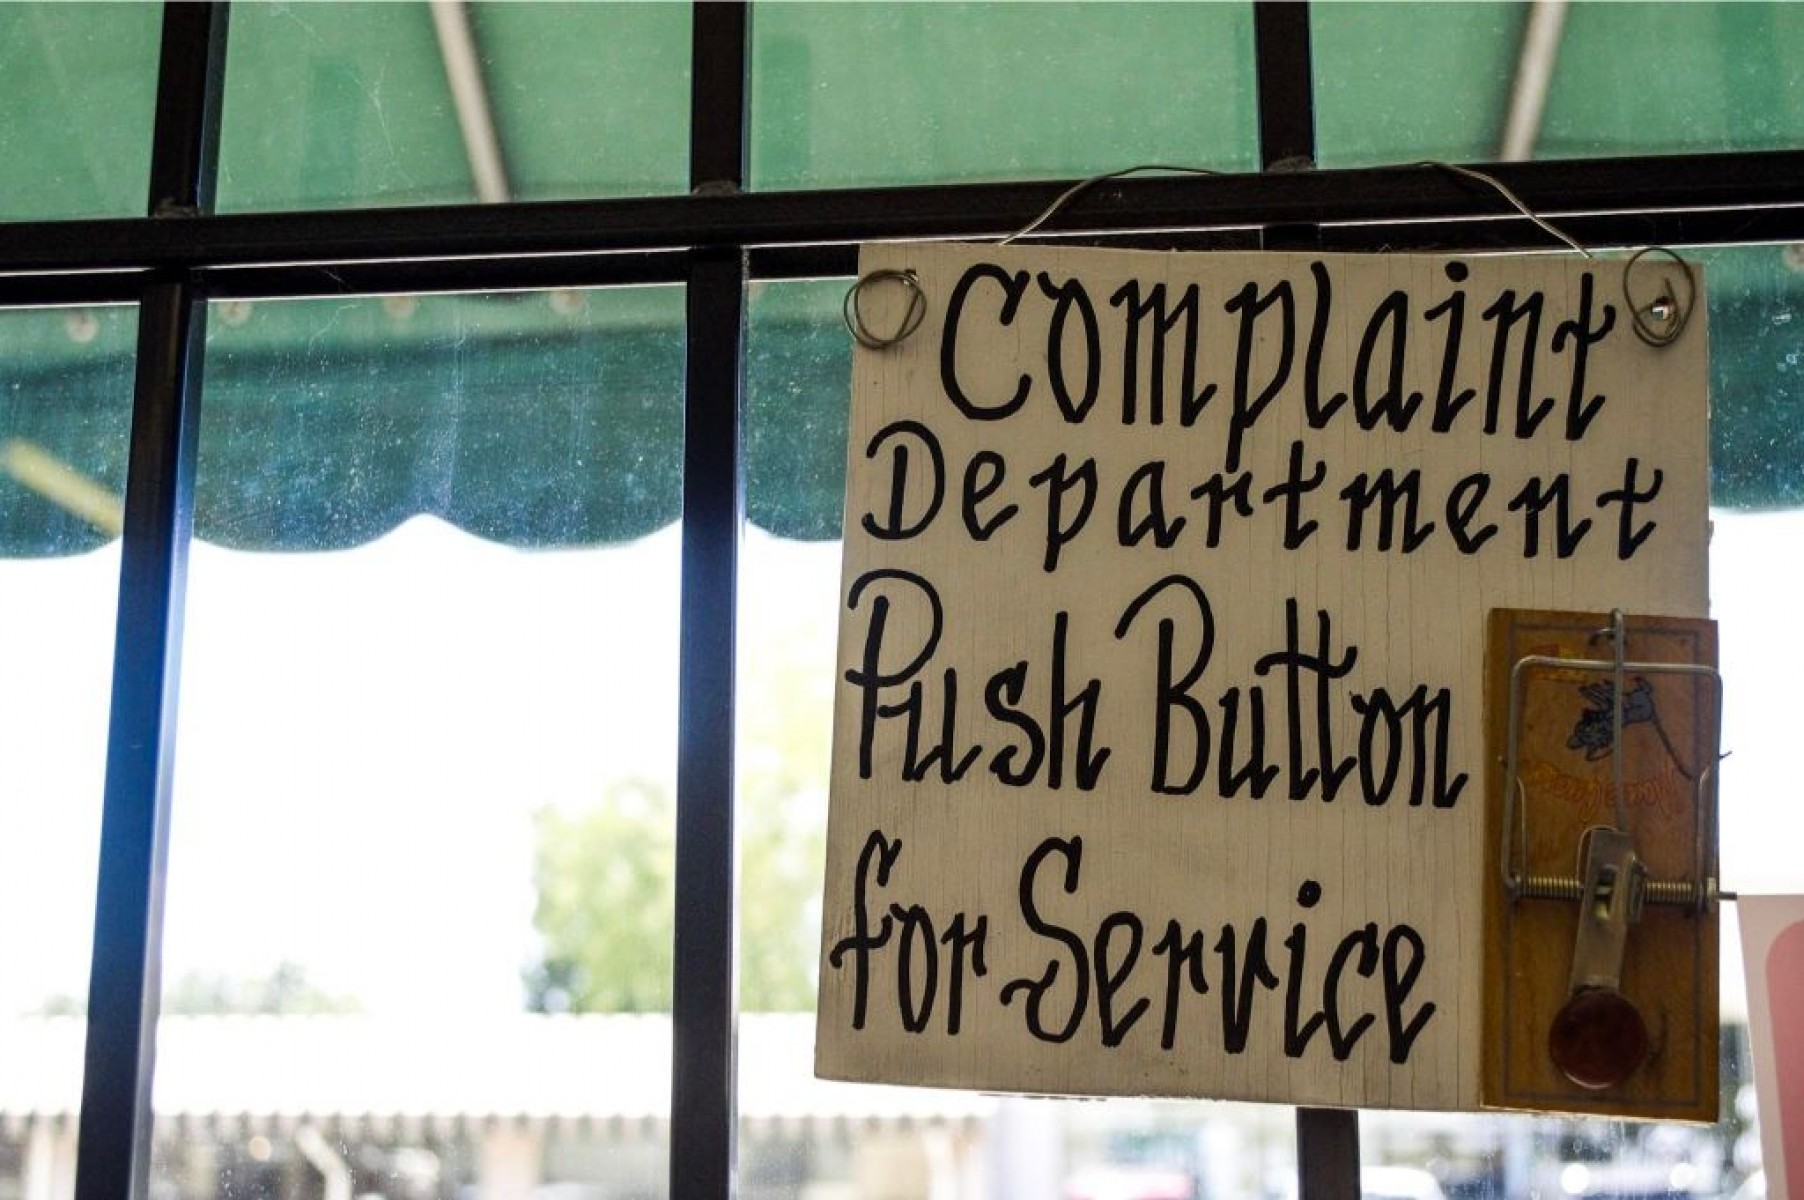 Complaint
Department
Push Button
for Service